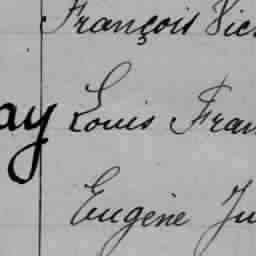 François Vic
ay Louis Fran
Eugène Ju